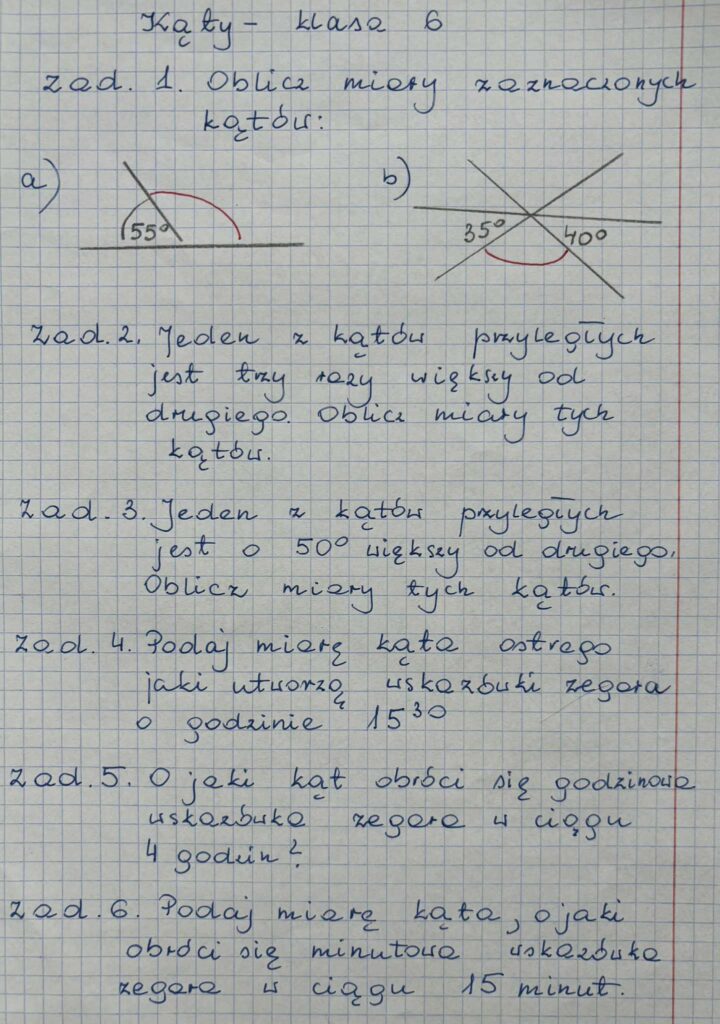 Kąty - klasa 6
Zad. 1. Oblicz miary zaznaczonych
kątów:
a)
55°
b)
35°
40°
Zad. 2. Jeden z kątów przyległych
jest trzy razy większy od
drugiego. Oblicz miary tych
kątów.
Zad. 3. Jeden z kątów przyległych
jest o 50° większy od drugiego.
Oblicz miary tych kątów.
Zad. 4. Podaj miarę kąta ostrego
jaki utworzą wskazówki zegara
o godzinie 15³⁰
Zad. 5. O jaki kąt obróci się godzinowa
wskazówka zegara w ciągu
4 godzin?
Zad. 6. Podaj miarę kąta, o jaki
obróci się minutowa wskazówka
zegara w ciągu 15 minut.